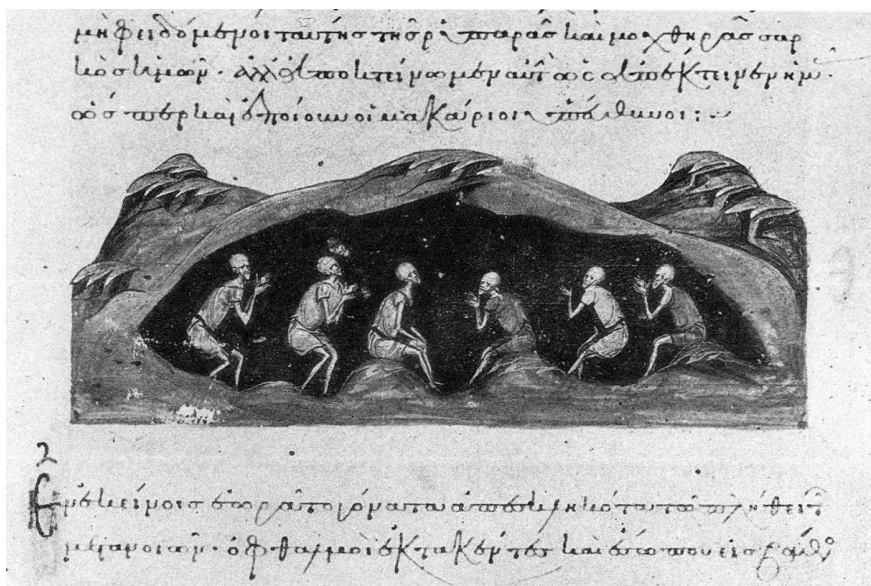 μὴ φειδόμενοι ταύτης τῆς ῥυπαρᾶς καὶ μοχθηρᾶς σαρ
κὸς ἡμῶν· ἀλλ' ἀποκτείνωμεν αὐτὴν ὡς ἀπέκτεινεν ἡμ
ὥσπερ καὶ ἐποίουν οἱ μακάριοι ὑπεύθυνοι:
Ἐν ἐκείνοις ἑωρᾶτο γόνατα ἀπεσκληκότα τῷ πλήθει τ
μετανοιῶν· ὀφθαλμοὶ ἐκτακέντες καὶ ἔσω που εἰς βάθο